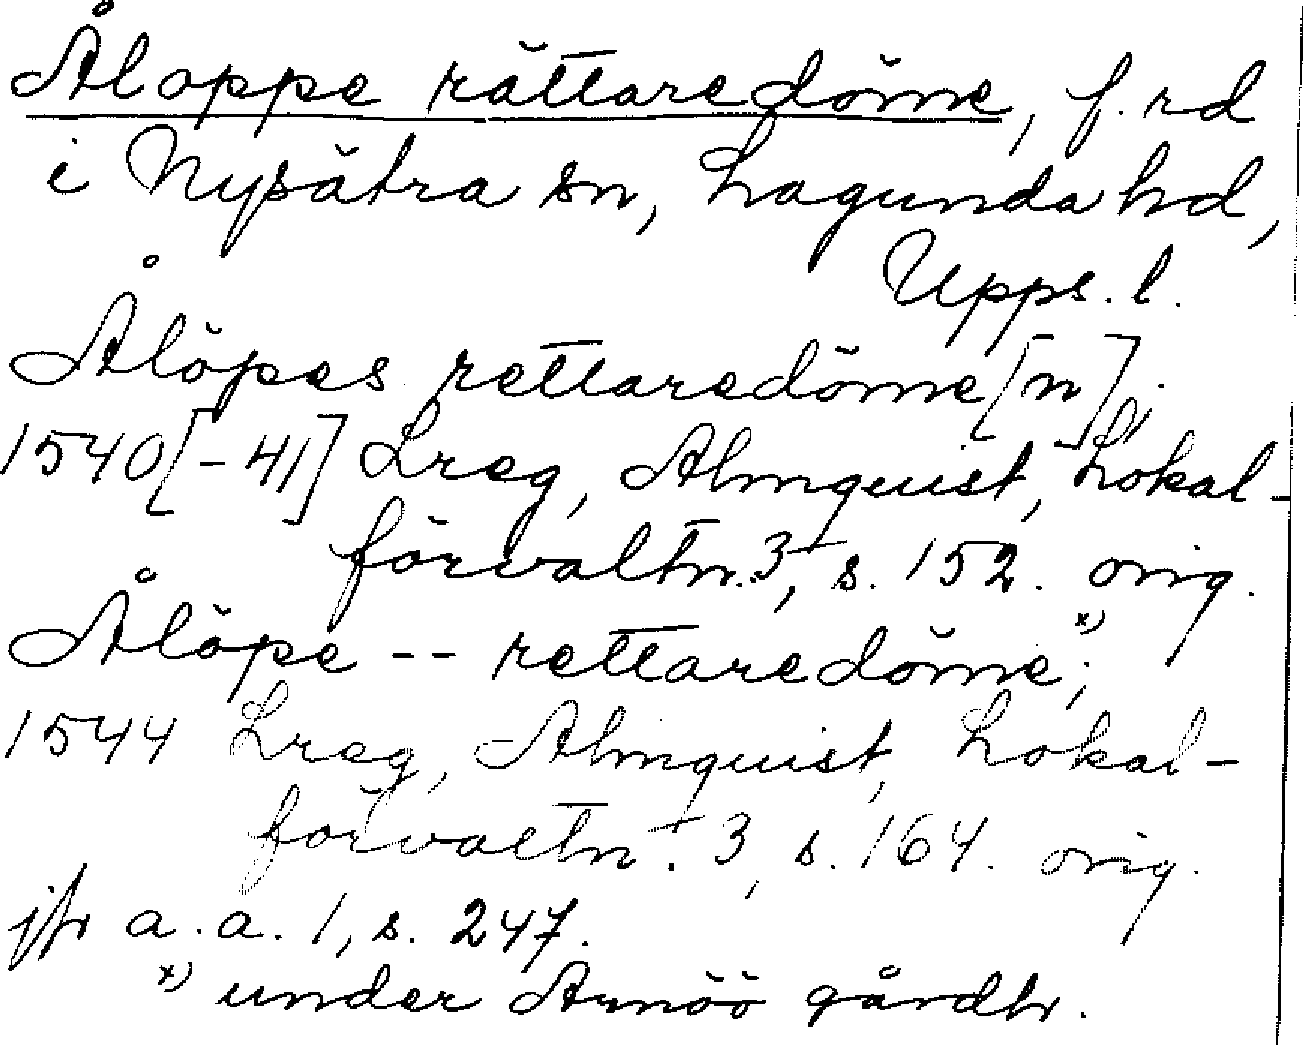 Åloppe rättaredöme, f. rd
i Nysätra sn, Lagunda hd,
Upps. l.
Ålöpes rettaredöme[n];
1540[-41] Lreg, Almquist, Lokal-
förvaltn. 3, s. 152. orig.
Ålöpe -- rettaredöme x);
1544 Lreg, Almquist, Lokal-
förvaltn. 3, s. 164. orig.
jfr a. a. 1, s. 247.
x) under Arnöö gårdh.